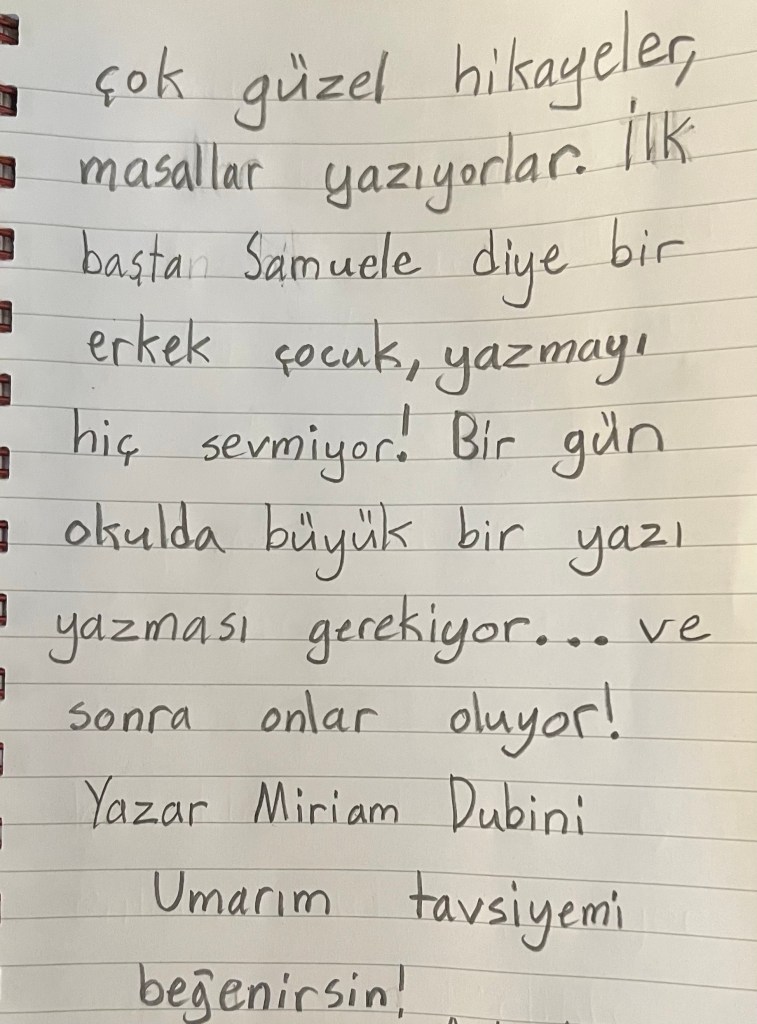 çok güzel hikayeler,
masallar yazıyorlar. İlk
başta Samuele diye bir
erkek çocuk, yazmayı
hiç sevmiyor! Bir gün
okulda büyük bir yazı
yazması gerekiyor... ve
sonra onlar oluyor!
Yazar Miriam Dubini
Umarım tavsiyemi
beğenirsin!